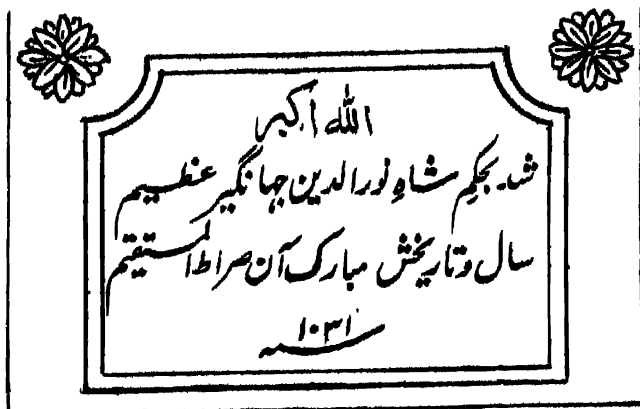 الله اکبر
شد بحکمِ شاہِ نورالدین جہانگیر عظیم
سال و تاریخش مبارک آن صراط المستیقم
۱۰۳۱